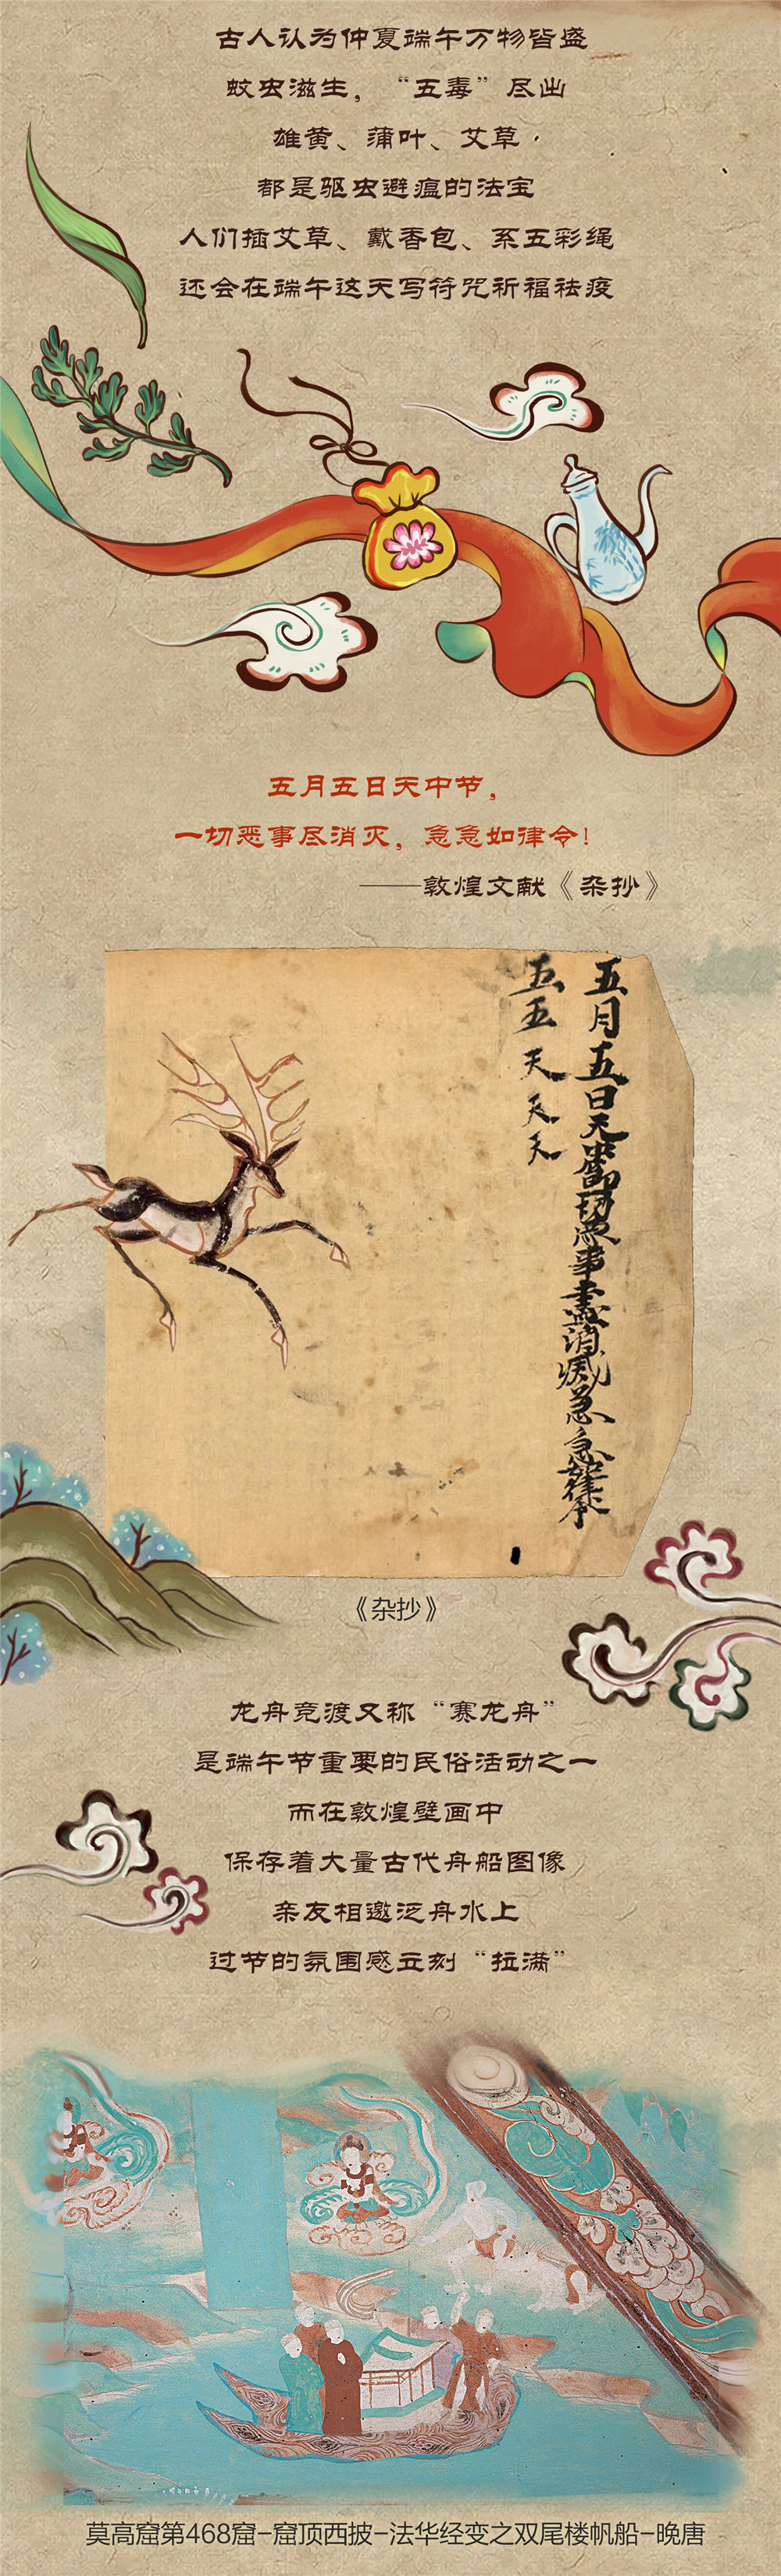 古人认为仲夏端午万物皆盛
蚊虫滋生，“五毒”尽出
雄黄、蒲叶、艾草，
都是驱虫避瘟的法宝
人们插艾草、戴香包、系五彩绳
还会在端午这天写符咒祈福祛疫
五月五日天中节，
一切恶事尽消灭，急急如律令！
——敦煌文献《杂抄》
五月五日天中節一切惡事盡消滅急急如律令
五五天天天
《杂抄》
龙舟竞渡又称“赛龙舟”
是端午节重要的民俗活动之一
而在敦煌壁画中
保存着大量古代舟船图像
亲友相邀泛舟水上
过节的氛围感立刻“拉满”
莫高窟第468窟-窟顶西披-法华经变之双尾楼帆船-晚唐